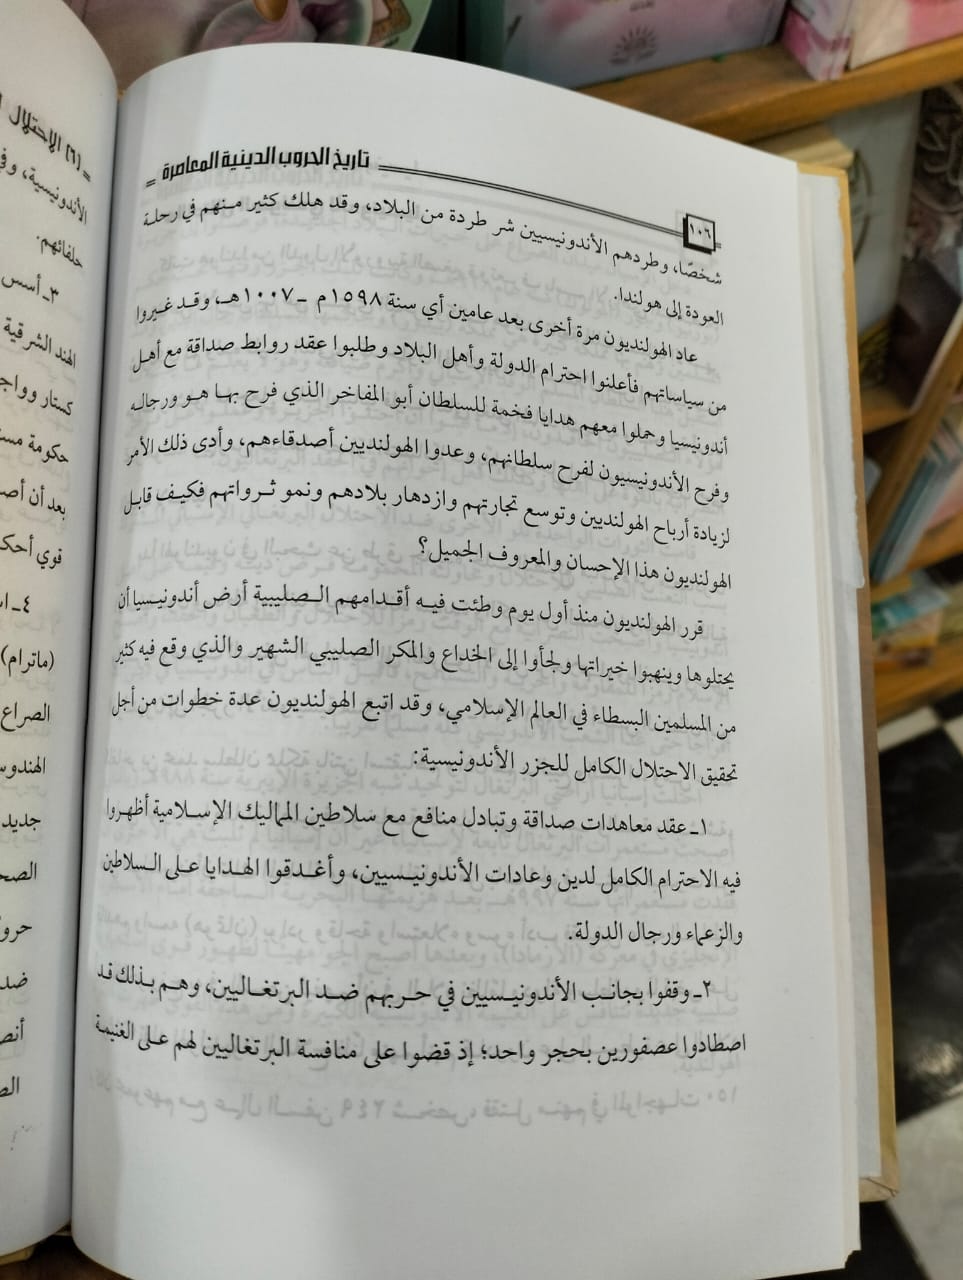 تاريخ الحروب الدينية المعاصرة
١٠٦
شخصًا، وطردهم الأندونيسيين شر طردة من البلاد، وقد هلك كثير منهم في رحلة
العودة إلى هولندا.
عاد الهولنديون مرة أخرى بعد عامين أي سنة ١٥٩٨م - ١٠٠٧هـ، وقد غيروا
من سياساتهم فأعلنوا احترام الدولة وأهل البلاد وطلبوا عقد روابط صداقة مع أهل
أندونيسيا وحملوا معهم هدايا فخمة للسلطان أبو المفاخر الذي فرح بها هو ورجاله
وفرح الأندونيسيون لفرح سلطانهم، وعدوا الهولنديين أصدقاءهم، وأدى ذلك الأمر
لزيادة أرباح الهولنديين وتوسع تجارتهم وازدهار بلادهم ونمو ثرواتهم فكيف قابل
الهولنديون هذا الإحسان والمعروف الجميل؟
قرر الهولنديون منذ أول يوم وطئت فيه أقدامهم الصليبية أرض أندونيسيا أن
يحتلوها وينهبوا خيراتها ولجأوا إلى الخداع والمكر الصليبي الشهير والذي وقع فيه كثير
من المسلمين البسطاء في العالم الإسلامي، وقد اتبع الهولنديون عدة خطوات من أجل
تحقيق الاحتلال الكامل للجزر الأندونيسية:
١ـ عقد معاهدات صداقة وتبادل منافع مع سلاطين الماليك الإسلامية أظهروا
فيه الاحترام الكامل لدين وعادات الأندونيسيين، وأغدقوا الهدايا على السلاطين
والزعماء ورجال الدولة.
٢ـ وقفوا بجانب الأندونيسيين في حربهم ضد البرتغاليين، وهم بذلك قد
اصطادوا عصفورين بحجر واحد؛ إذ قضوا على منافسة البرتغاليين لهم على الغنيمة
(٦) الاحتلال
الأندونيسية، وفي
حلفائهم.
٣ـ أسس
الهند الشرقية
حكومة
بعد أن
قوي
٤ـ
(ماترام)
الصراع
جديد
ضد